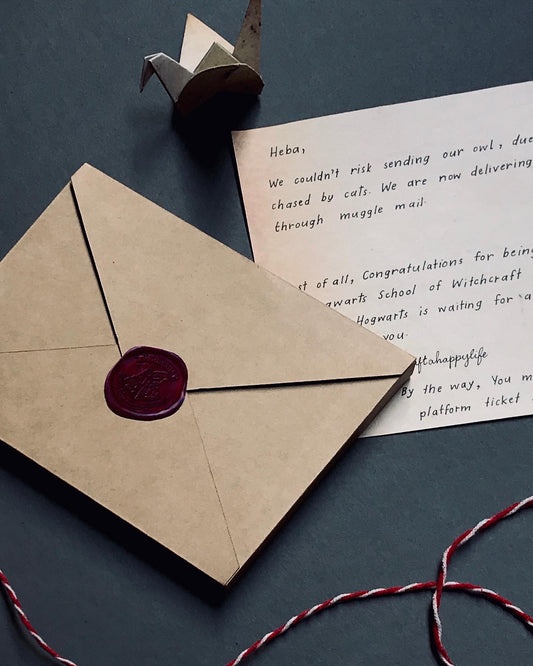 Heba,
We couldn't risk sending our owl, due
chased by cats. We are now delivering
through muggle mail.
st of all, Congratulations for being
gwarts School of Witchcraft
Hogwarts is waiting for a
you.
ftahappylife
By the way, You m
platform ticket